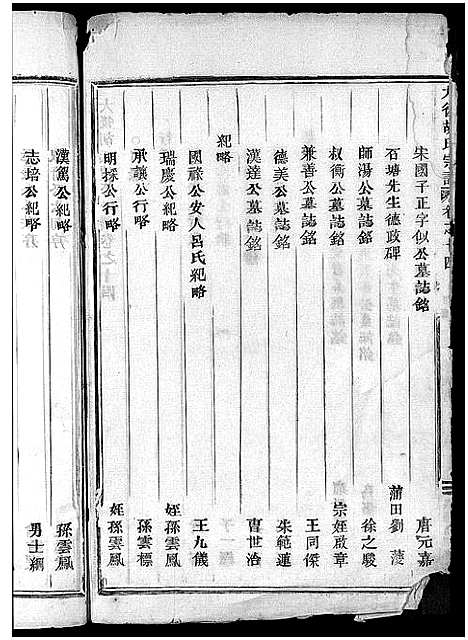 宋國子正字似公墓誌銘 唐元嘉
石塘先生德政碑 蒲田劉
師湯公墓誌銘 徐之駿
叔衡公墓誌銘 宗姪啟章
兼善公墓誌銘 王同傑
德美公墓誌銘 朱範運
漢達公墓誌銘 曹世洽
紀略
國祿公安人呂氏紀略 王九儀
瑞慶公紀略 姪孫雲鳳
承讓公行略 孫雲標
明採公行略 姪孫雲鳳
漢駕公紀略 孫雲鳳
志培公紀略 男士